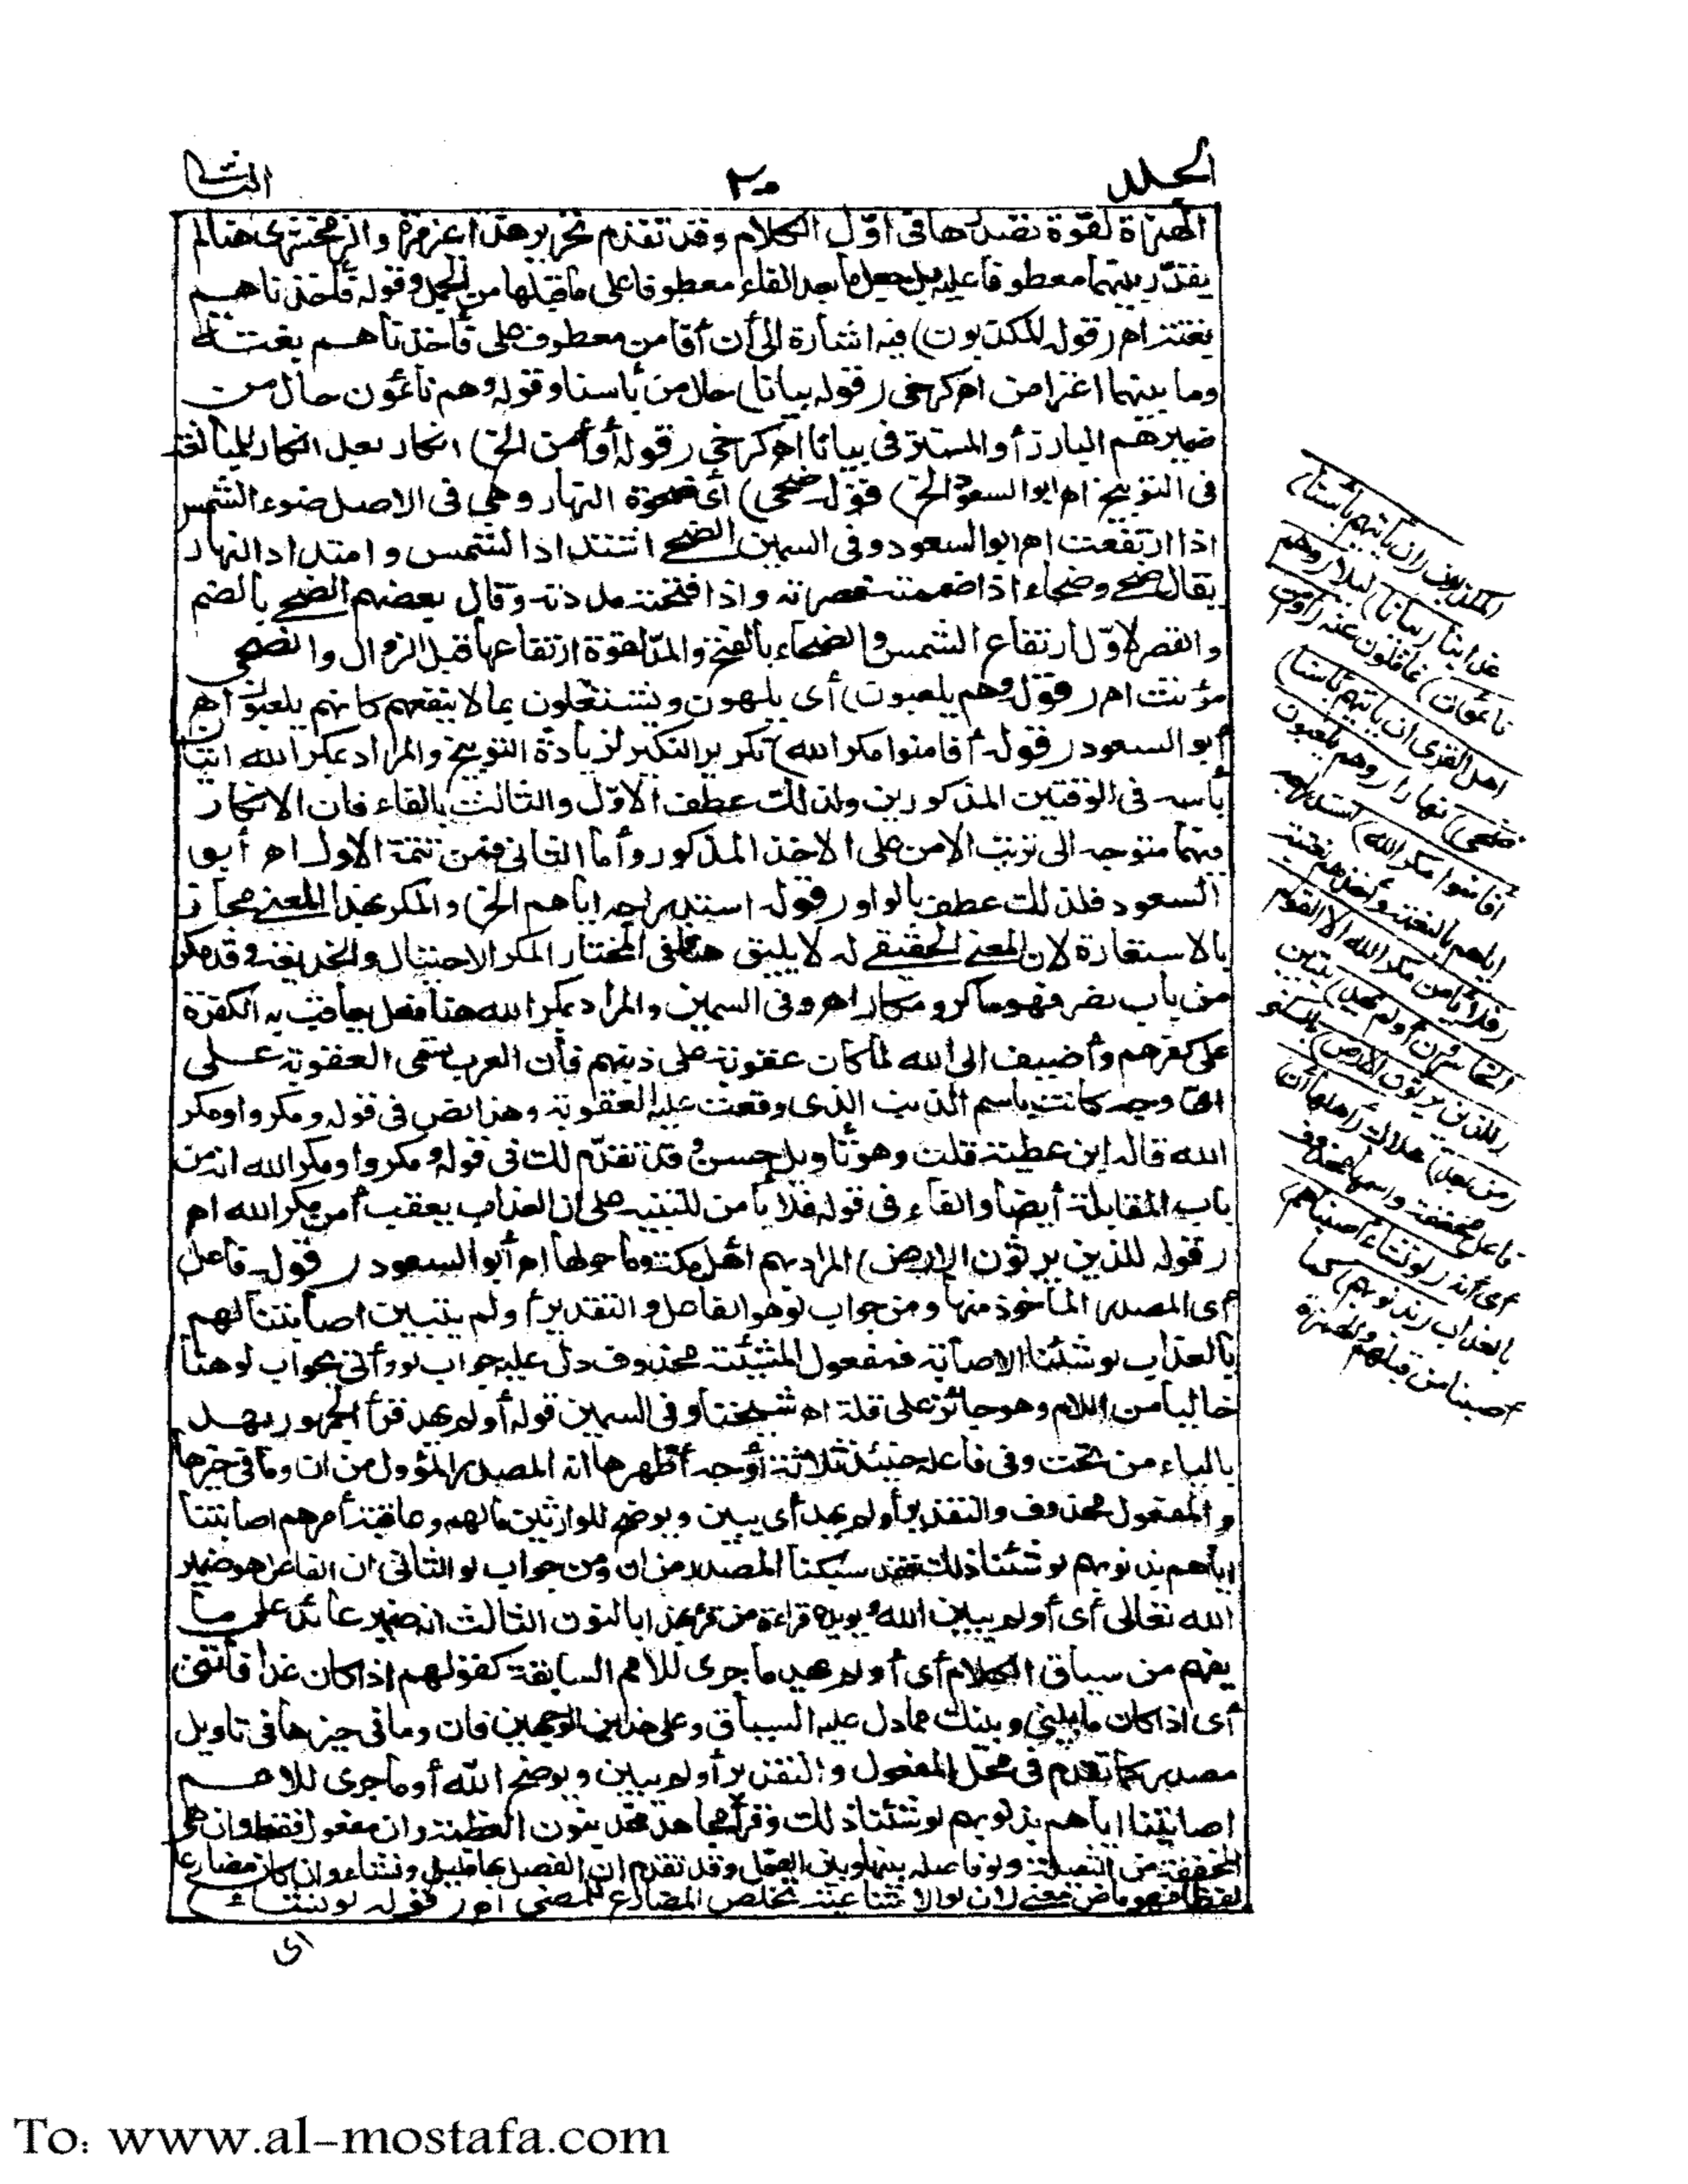 الجلد
٢٠
الثانى
الهمزة لقوة تقديرها فى أوّل الكلام وقد تقدّم تحرير هذا غير مرة والزمخشرى هنا لم
يقدّر بينهما معطوفا عليه بل جعل ما بعد الفاء معطوفا على ما قبلها من الجمل وقوله فأخذناهم
بغتة اهـ (قوله المكذبون) فيه اشارة الى أن أفأمن معطوف على فأخذناهم بغتة
وما بينهما اعتراض اهـ كرخى (قوله بياتا) حال من بأسنا وقوله وهم نائمون حال من
ضميرهم البارز أو المستتر فى بياتا اهـ كرخى (قوله أو أمن الخ) انكار بعد انكار للمبالغة
فى التوبيخ اهـ ابو السعود الخ (قوله ضحى) أى ضحوة النهار وهى فى الاصل ضوء الشمس
اذا ارتفعت اهـ ابو السعود وفى السمين الضحى اشتداد الشمس وامتداد النهار
يقال ضحى وضحاء اذا ضممته قصرته واذا فتحته مددته وقال بعضهم الضحى بالضم
والقصر لاوّل ارتفاع الشمس والضحاء بالفتح والمدّ لقوة ارتفاعها قبل الزوال والضحى
مؤنث اهـ (قوله وهم يلعبون) أى يلهون ويشتغلون بما لا ينفعهم كانهم يلعبون اهـ
أبو السعود (قوله أفأمنوا مكر الله) تكرير النكير لزيادة التوبيخ والمراد بمكر الله اتيان
بأسه فى الوقتين المذكورين ولذلك عطف الاوّل والثالث بالفاء فان الانكار
فيهما متوجه الى ترتب الامن على الاخذ المذكور وأما الثانى فمن تتمة الاول اهـ أبو
السعود فلذلك عطف بالواو (قوله استدراجه اياهم الخ) والمكر بهذا المعنى مجاز
بالاستعارة لان المعنى الحقيقى له لا يليق هنا ففى المختار المكر الاحتيال والخديعة وقد مكر
من باب نصر فهو ماكر ومكار اهـ وفى السمين والمراد بمكر الله هنا فعل يعاقب به الكفرة
على كفرهم وأضيف الى الله لما كان عقوبة على ذنبهم فان العرب تسمى العقوبة على
اىّ وجه كانت باسم الذنب الذى وقعت عليه العقوبة وهذا نص فى قوله ومكروا ومكر
الله قاله ابن عطية قلت وهو تأويل حسن وقد تقدّم لك فى قوله ومكروا ومكر الله انه من
باب المقابلة أيضا والفاء فى قوله فلا يأمن للتنبيه على ان العذاب يعقب أمن مكر الله اهـ
(قوله للذين يرثون الارض) المراد بهم أهل مكة وما حولها اهـ أبو السعود (قوله فاعل)
أى المصدر المأخوذ منها ومن جواب لو هو الفاعل والتقدير أولم يتبين اصابتنا لهم
بالعذاب لو شئنا الاصابة فمفعول المشيئة محذوف دل عليه جواب لو وأتى بجواب لو هنا
خاليا من اللام وهو جائز على قلة اهـ شيخنا وفى السمين قوله أولم يهد قرأ الجمهور يهد
بالياء من تحت وفى فاعله حينئذ ثلاثة أوجه أظهرها انه المصدر المؤول من ان وما فى حيزها
والمفعول محذوف والتقدير أولم يهد أى يبين ويوضح للوارثين مآلهم وعاقبة أمرهم اصابتنا
اياهم بذنوبهم لو شئنا ذلك فقد سبكنا المصدر من ان ومن جواب لو الثانى ان الفاعل هو ضمير
الله تعالى أى أولم يبين الله ويؤيده قراءة من قرأ نهد بالنون الثالث انه ضمير عائد على ما
يفهم من سياق الكلام أى أولم يهد ما جرى للامم السابقة كقولهم اذا كان غدا فأتنى
أى اذا كان ما بينى وبينك مما دل عليه السياق وعلى هذين الوجهين فان وما فى حيزها فى تاويل
مصدر كما تقدم فى محل المفعول والتقدير أولم يبين ويوضح الله أو ما جرى للامم
اصابتنا اياهم بذنوبهم لو شئنا ذلك وقرأ مجاهد نهد بنون العظمة وان مفعول فقط وان هى
المخففة من الثقيلة ولو فاصلة بينها وبين الفعل وقد تقدم ان الفصل بها قليل ونشاء وان كان مضارعا
لفظا فهو ماض معنى لان لو الامتناعية تخلص المضارع للمضى اهـ (قوله لو نشاء)
أى
المكذبون (أن يأتيهم بأسنا)
عذابنا (بياتا) ليلا (وهم
نائمون) غافلون عنه (أو أمن
اهل القرى ان يأتيهم بأسنا
ضحى) نهارا (وهم يلعبون
أفأمنوا مكر الله) استدراجه
اياهم بالنعمة وأخذهم بغتة
(فلا يأمن مكر الله الا القوم
الخاسرون أولم يهد) يتبين
(للذين يرثون الارض) بالسكنى
(من بعد) هلاك (أهلها أن)
فاعل مخففة واسمها محذوف
أى أنه (لو نشاء أصبناهم)
بالعذاب (بذنوبهم) كما
أصبنا من قبلهم والهمزة
To: www.al-mostafa.com